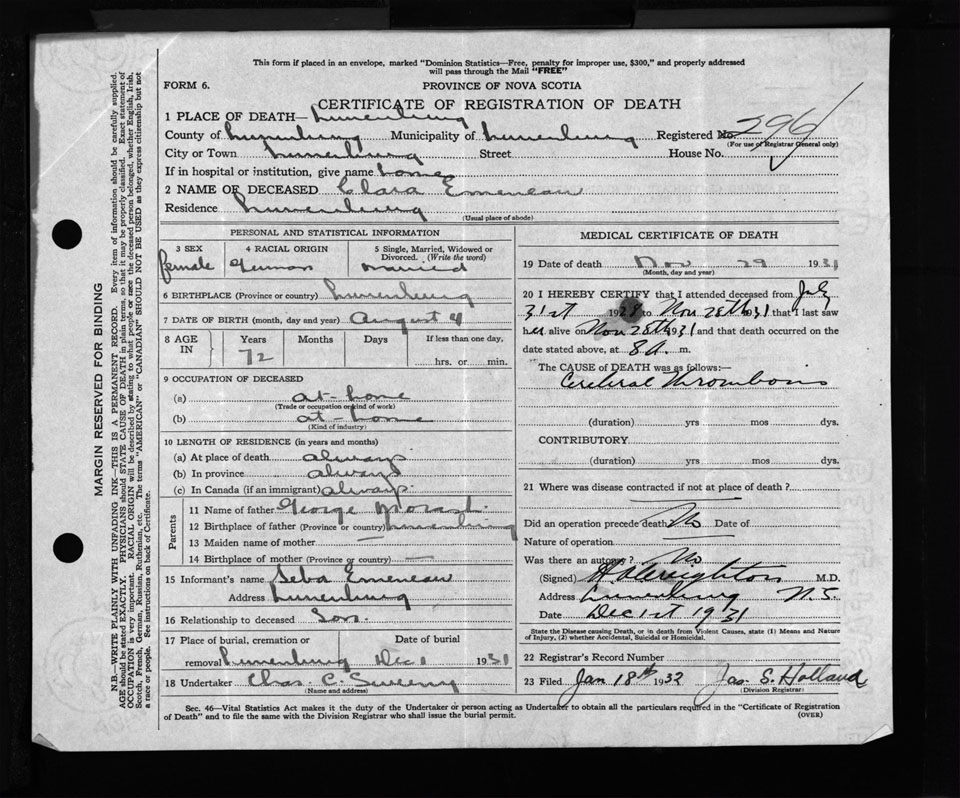 This form if placed in an envelope, marked "Dominion Statistics—Free, penalty for improper use, $300," and properly addressed
will pass through the Mail "FREE"
FORM 6.
PROVINCE OF NOVA SCOTIA
CERTIFICATE OF REGISTRATION OF DEATH
1 PLACE OF DEATH— Lunenburg
County of Lunenburg Municipality of Lunenburg Registered No. 296
(For use of Registrar General only)
City or Town Lunenburg Street House No.
If in hospital or institution, give name home
2 NAME OF DECEASED Clara Emeneau
Residence Lunenburg
(Usual place of abode)
PERSONAL AND STATISTICAL INFORMATION
3 SEX 4 RACIAL ORIGIN 5 Single, Married, Widowed or
Divorced. (Write the word)
female German married
6 BIRTHPLACE (Province or country) Lunenburg
7 DATE OF BIRTH (month, day and year) August 4
8 AGE IN Years Months Days If less than one day,
72 hrs. or min.
9 OCCUPATION OF DECEASED
(a) at-home
(Trade or occupation or kind of work)
(b) at-home
(Kind of industry)
10 LENGTH OF RESIDENCE (in years and months)
(a) At place of death always
(b) In province always
(c) In Canada (if an immigrant) always
Parents
11 Name of father George Morash
12 Birthplace of father (Province or country) Lunenburg
13 Maiden name of mother —
14 Birthplace of mother (Province or country) —
15 Informant's name Seba Emeneau
Address Lunenburg
16 Relationship to deceased Son.
17 Place of burial, cremation or Date of burial
removal Lunenburg Dec 1 1931
18 Undertaker Chas. C. Sweeny
(Name and address)
MEDICAL CERTIFICATE OF DEATH
19 Date of death Nov 29 1931
(Month, day and year)
20 I HEREBY CERTIFY that I attended deceased from July
31st 1928 to Nov 28th 1931 that I last saw
her alive on Nov 28th 1931 and that death occurred on the
date stated above, at 8 A. m.
The CAUSE OF DEATH was as follows:—
Cerebral Thrombosis
(duration) yrs mos dys.
CONTRIBUTORY
(duration) yrs mos dys.
21 Where was disease contracted if not at place of death?
Did an operation precede death No Date of
Nature of operation
Was there an autopsy? No
(Signed) Creighton M.D.
Address Lunenburg N.S.
Date Dec 1st 1931
State the Disease causing Death, or in death from Violent Causes, state (1) Means and Nature
of Injury, (2) whether Accidental, Suicidal or Homicidal.
22 Registrar's Record Number
23 Filed Jan 18th 1932 Jas. S. Holland
(Division Registrar)
Sec. 46—Vital Statistics Act makes it the duty of the Undertaker or person acting as Undertaker to obtain all the particulars required in the "Certificate of Registration
of Death" and to file the same with the Division Registrar who shall issue the burial permit.
(OVER)
MARGIN RESERVED FOR BINDING
N.B.—WRITE PLAINLY WITH UNFADING INK—THIS IS A PERMANENT RECORD. Every item of information should be carefully supplied.
AGE should be stated EXACTLY. PHYSICIANS should STATE CAUSE OF DEATH in plain terms, so that it may be properly classified. Exact statement of
OCCUPATION is very important. RACIAL ORIGIN will be described by stating to what people or race the deceased person belonged, whether English, Irish,
Scotch, French, German, Russian, Ruthenian, etc. The terms "AMERICAN" or "CANADIAN" SHOULD NOT BE USED as they express citizenship but not
a race or people. See instructions on back of Certificate.